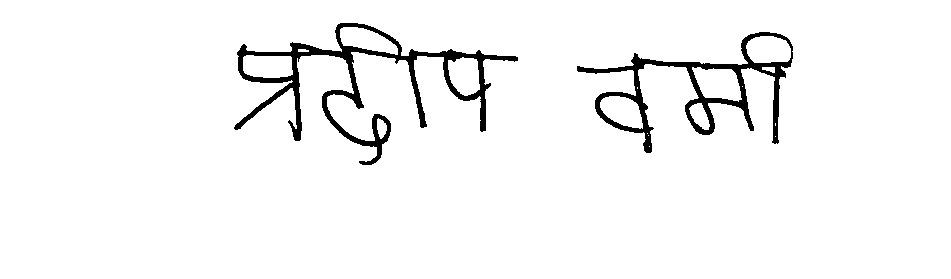 प्रदीप वर्मा